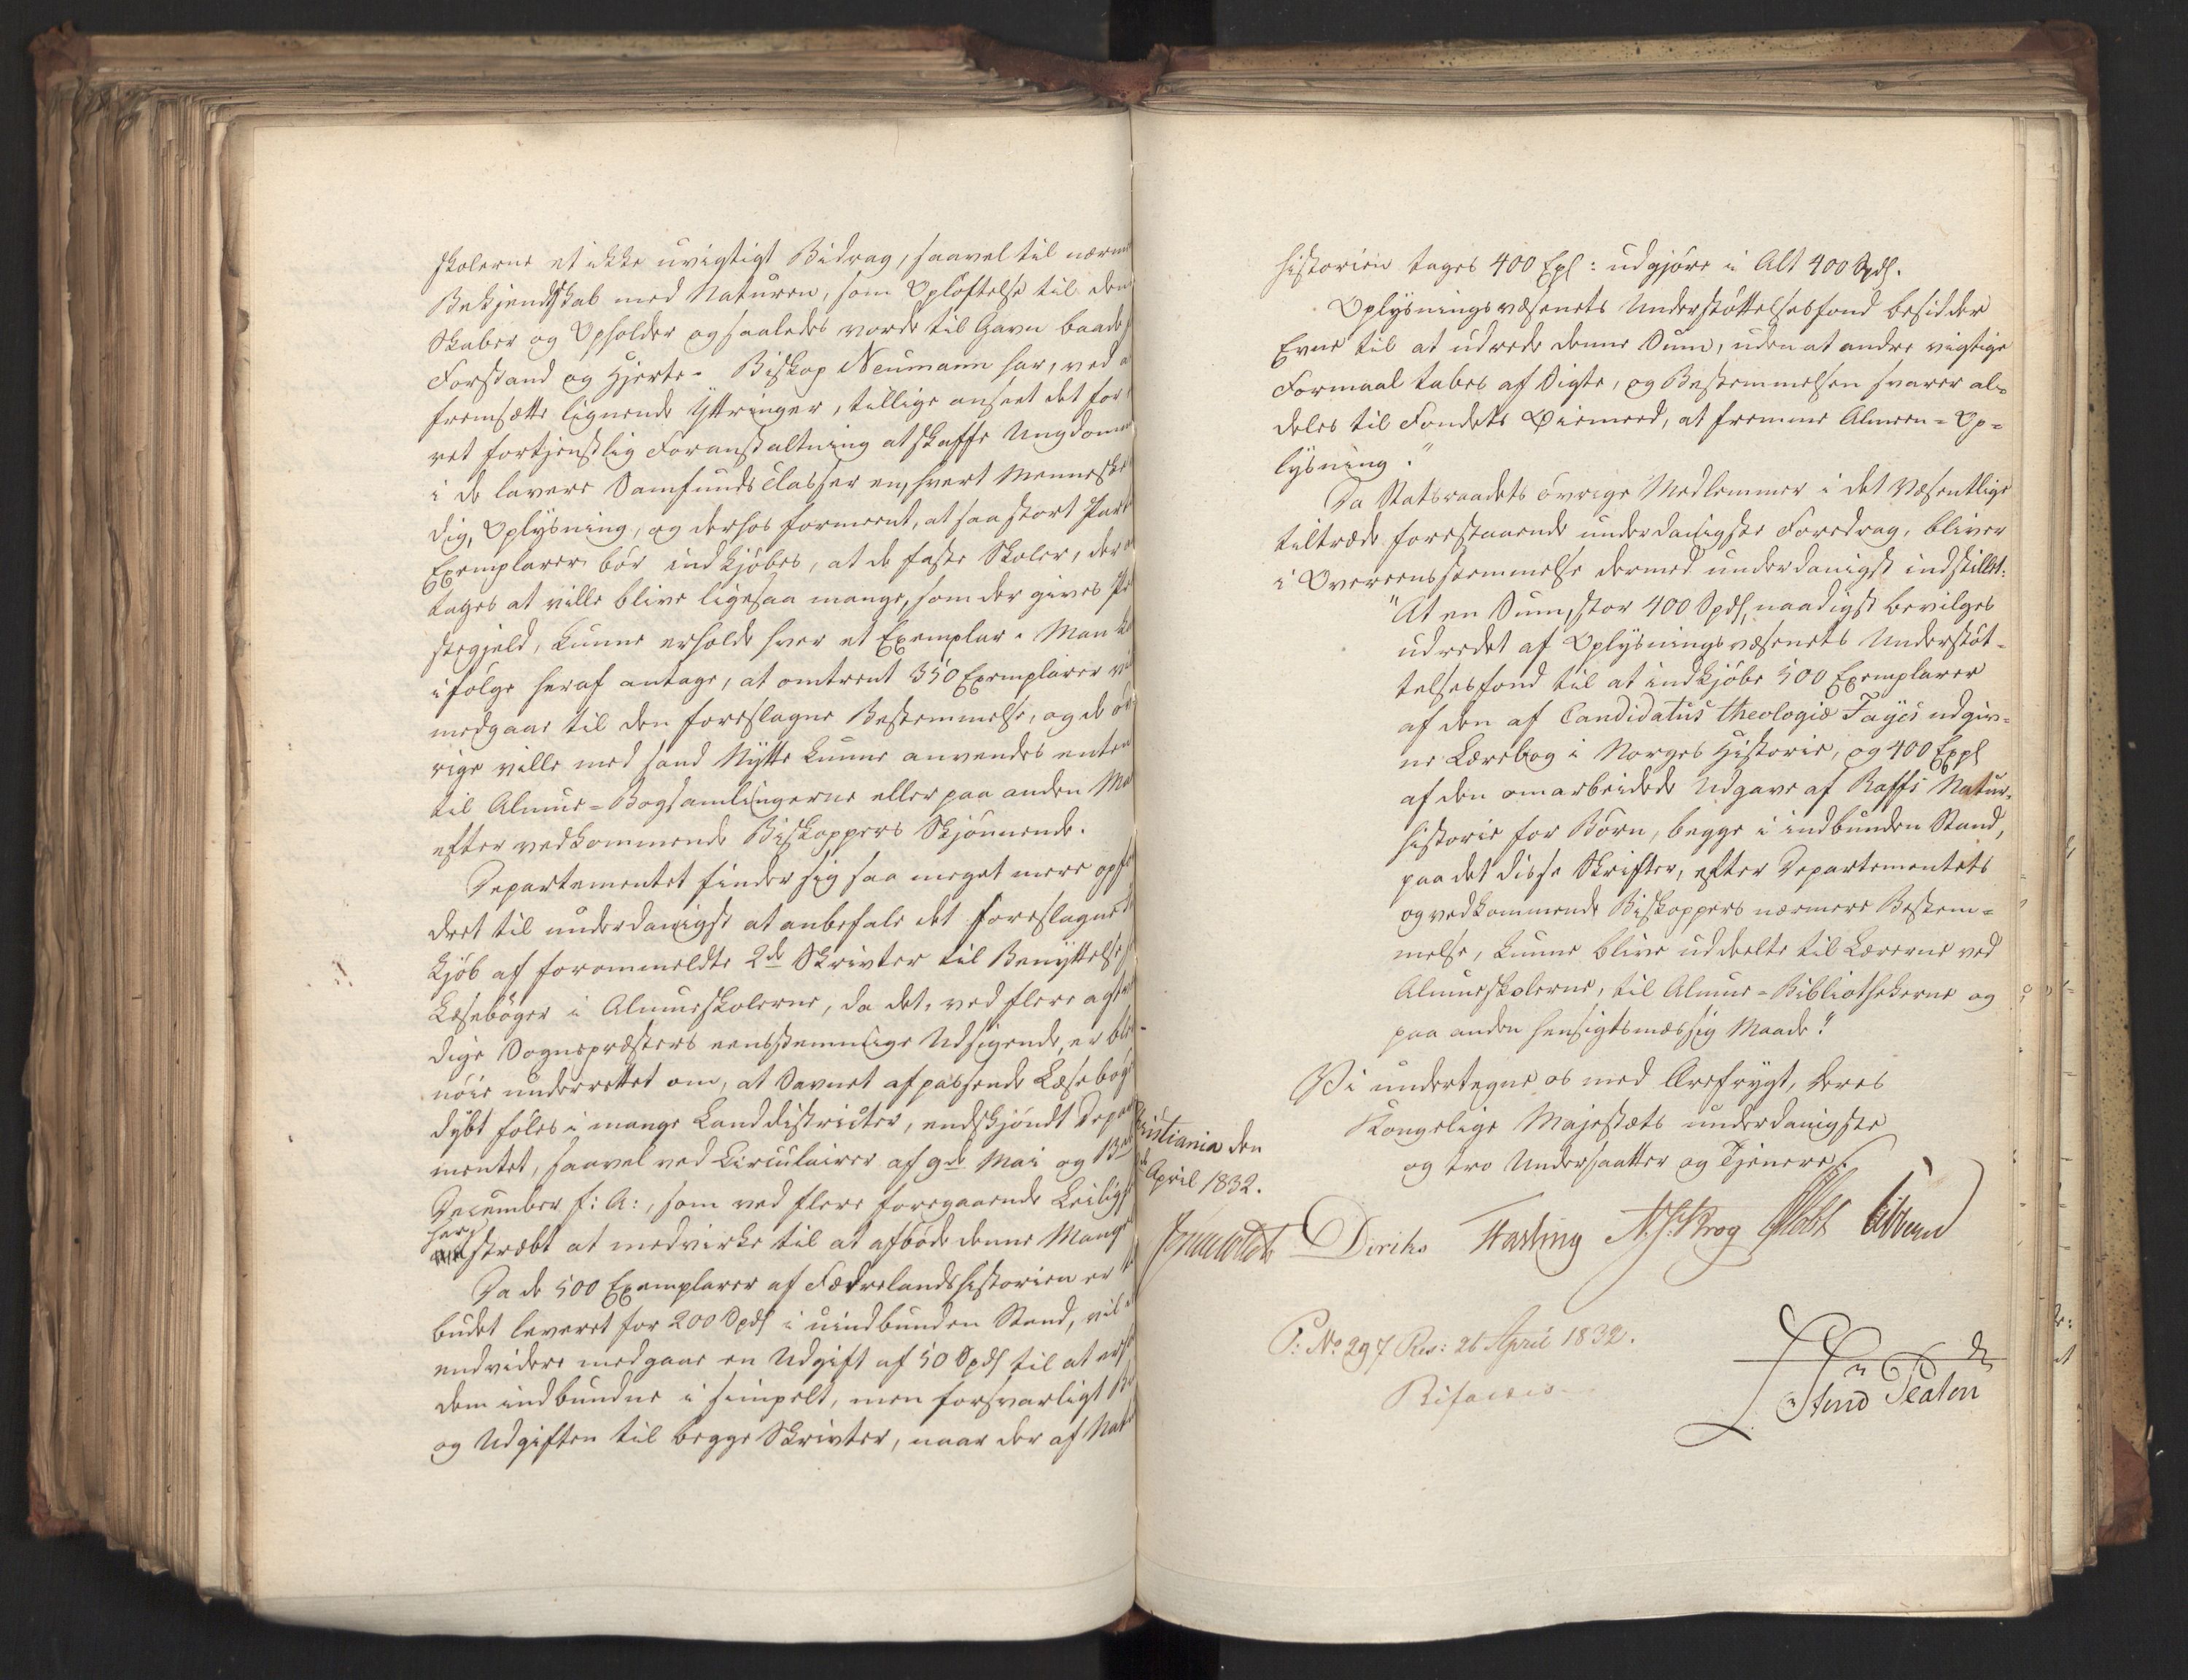 skolerne et ikke uvigtigt Bidrag, saavel til nærm
Bekjendtskab med Naturen, som Opløftelse til den
Skaber og Opholder og saaledes vorde til Gavn baade
Forstand og Hjerte. Biskop Neumann har, ved a
fremsætte lignende Yttringer, tillige anseet det for
ret fortjenstlig Foranstaltning at skaffe Ungdomm
i de lavere Samfunds Classer en, hvert Menneske
dig, Oplysning, og derhos formeent, at saa stort Par
Exemplarer bør indkjøbes, at de faste Skoler, der
tages at ville blive ligesaa mange, som der gives Pr
stegjeld, kunne erholde hver et Exemplar. Man k
ifølge heraf antage, at omtrent 350 Exemplarer vi
medgaae til den foreslagne Bestemmelse, og de øv
rige ville med sand Nytte kunne anvendes enten
til Almue-Bogsamlingerne eller paa anden Ma
efter vedkommende Biskoppers Skjønnende.
Departementet finder sig saa meget mere opfo
dret til underdanigst at anbefale det foreslagne
Kjøb af forommeldte 2de Skrivter til Benyttelse
Læsebøger i Almueskolerne, da det, ved flere agtv
dige Sognepræsters eensstemmige Udsigende, er ble
nøie underrettet om, at Savnet af passende Læsebøge
dybt føles i mange Landdistricter, endskjøndt Depa
mentet, saavel ved Circulairer af 9de Mai og 13de
December f: A:, som ved flere foregaaende Leilighe
har
stræbt at medvirke til at afbøde denne Mange
Da de 500 Exemplarer af Fædrelandshistorien er
budet leveret for 200 Spdl i uindbunden Stand, vil
endvidere medgaae en Udgift af 50 Spdl til at erh
dem indbundne i simpelt, men forsvarligt Bi
og Udgiften til begge Skrivter, naar der af Nat
historien tages 400 Expl: udgjøre i Alt 400 Spdl.
Oplysningsvæsenets Understøttelsesfond besidder
Evne til at udrede denne Sum, uden at andre vigtige
Formaal tabes af Sigte, og Bestemmelsen svarer al-
deles til Fondets Øiemeed, at fremme Almeen-Op-
lysning."
Da Statsraadets øvrige Medlemmer i det Væsentlige
tiltræde forestaaende underdanigste Foredrag, bliver
i Overeensstemmelse dermed underdanigst indstillet:
"At en Sum, stor 400 Spdl, naadigst bevilges
udredet af Oplysningsvæsenets Understøt-
telsesfond til at indkjøbe 500 Exemplarer
af den af Candidatus theologiæ Fayes udgiv-
ne Lærebog i Norges Historie, og 400 Expl
af den omarbeidede Udgave af Raffs Natur-
historie for Børn, begge i indbunden Stand,
paa det disse Skrifter, efter Departementets
og vedkommende Biskoppers nærmere Bestem-
melse, kunne blive uddeelte til Lærerne ved
Almueskolerne, til Almue-Bibliothekerne og
paa anden hensigtsmæssig Maade."
Vi undertegne os med Ærefrygt, Deres
Kongelige Majestæts underdanigste
og tro Undersaatter og Tjenere.
ristiania den
April 1832.
Diriks Fasting N. J. Krog
P: No 297 Res: 26 April 1832.
Bifaldes